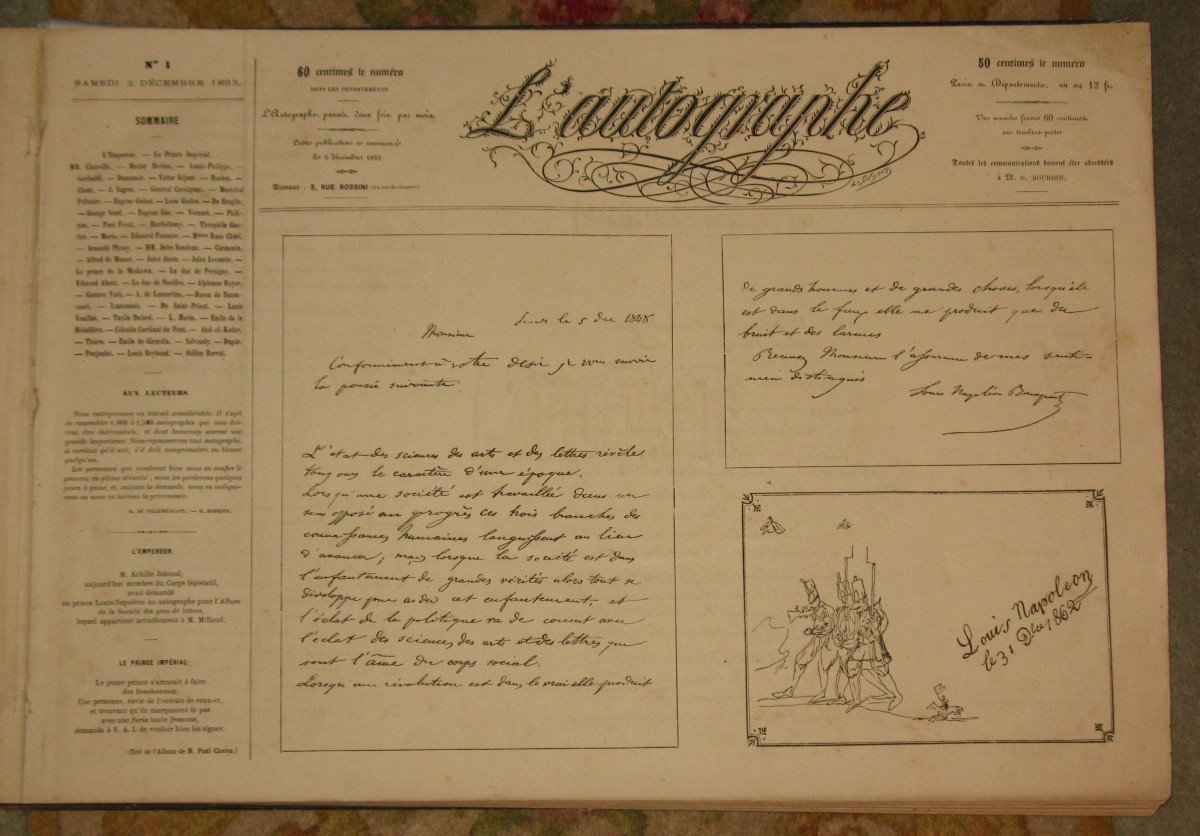 N° 1
SAMEDI 5 DÉCEMBRE 1863.
SOMMAIRE
L'Empereur. — Le Prince Impérial.
MM. Charville. — Hector Berlioz. — Louis-Philippe. —
Garibaldi. — Dumanoir. — Victor Séjour. — Barbay. —
Cham. — J. Ingres. — Général Cavaignac. — Maréchal
Pélissier. — Eugène Guinot. — Léon Gozlan. — De Broglie.
— George Sand. — Eugène Sue. — Viennet. — Phili-
pon. — Paul Féval. — Barthélemy. — Théophile Gau-
tier. — Mario. — Edouard Fournier. — Mmes Rose Chéri.
— Arnould Plessy. — MM. Jules Sandeau. — Cormenin.
— Alfred de Musset. — Jules Janin. — Jules Lecomte. —
Le prince de la Moskowa. — Le duc de Persigny. —
Edmond About. — Le duc de Noailles. — Alphonse Royer.
— Gustave Vaëz. — A. de Lamartine. — Baron de Bazan-
court. — Lamennais. — De Saint-Priest. — Louis
Veuillot. — Taxile Delord. — L. Havin. — Emile de la
Bédollière. — Célestin Cardinal du Pont. — Abd-el-Kader.
— Thiers. — Emile de Girardin. — Salvandy. — Dupin.
— Poujoulat. — Louis Reybaud. — Odilon Barrot.
AUX LECTEURS
Nous entreprenons un travail considérable. Il s'agit
de rassembler 1,000 à 1,500 autographes qui tous doi-
vent être intéressants, et dont beaucoup auront une
grande importance. Nous repousserons tout autographe,
si curieux qu'il soit, s'il doit compromettre ou blesser
quelqu'un.
Les personnes qui voudront bien nous en confier le
peuvent en pleine sécurité ; nous les garderons quelques
jours à peine, et, suivant la demande, nous en indique-
rons ou nous en tairons la provenance.
H. DE VILLEMESSANT. — G. BOURDIN.
L'EMPEREUR
M. Achille Jubinal,
aujourd'hui membre du Corps législatif,
avait demandé
au prince Louis-Napoléon un autographe pour l'Album
de la Société des gens de lettres,
lequel appartient actuellement à M. Millaud.
LE PRINCE IMPÉRIAL
Le jeune prince s'amusait à faire
des bonshommes.
Une personne, ravie de l'entrain de ceux-ci,
et trouvant qu'ils marquaient le pas
avec une furia toute francese,
demanda à S. A. I. de vouloir bien les signer.
(Tiré de l'Album de M. Paul Chenu.)
60 centimes le numéro
DANS LES DÉPARTEMENTS
L'Autographe paraît deux fois par mois
Cette publication a commencé
le 5 décembre 1863
Bureaux - 5, RUE ROSSINI (Au rez-de-chaussée)
L'autographe
50 centimes le numéro
Paris et Départements, un an 12 fr.
Un numéro franco 60 centimes
en timbres-poste
Toutes les communications doivent être adressées
à M. G. BOURDIN.
le 5 Dec 1848
Monsieur
Conformément à votre desir je vous envoie
la pensée suivante.
L'état des sciences des arts et des lettres révèle
toujours le caractère d'une époque.
Lorsqu'une société est travaillée dans un
sens opposé au progrès ces trois branches des
connaissances humaines languissent au lieu
d'avancer ; mais lorsque la société est dans
l'enfantement de grandes vérités alors tout se
développe pour aider cet enfantement, et
l'éclat de la politique va de concert avec
l'éclat des sciences des arts et des lettres qui
sont l'âme du corps social.
Lorsqu'une révolution est dans le vrai elle produit
de grands hommes et de grandes choses, lorsqu'elle
est dans le faux elle ne produit que du
bruit et des larmes
Recevez Monsieur l'assurance de mes senti-
mens distingués
Louis Napoléon Bonaparte
Louis Napoleon
le 31 Dbre 1862